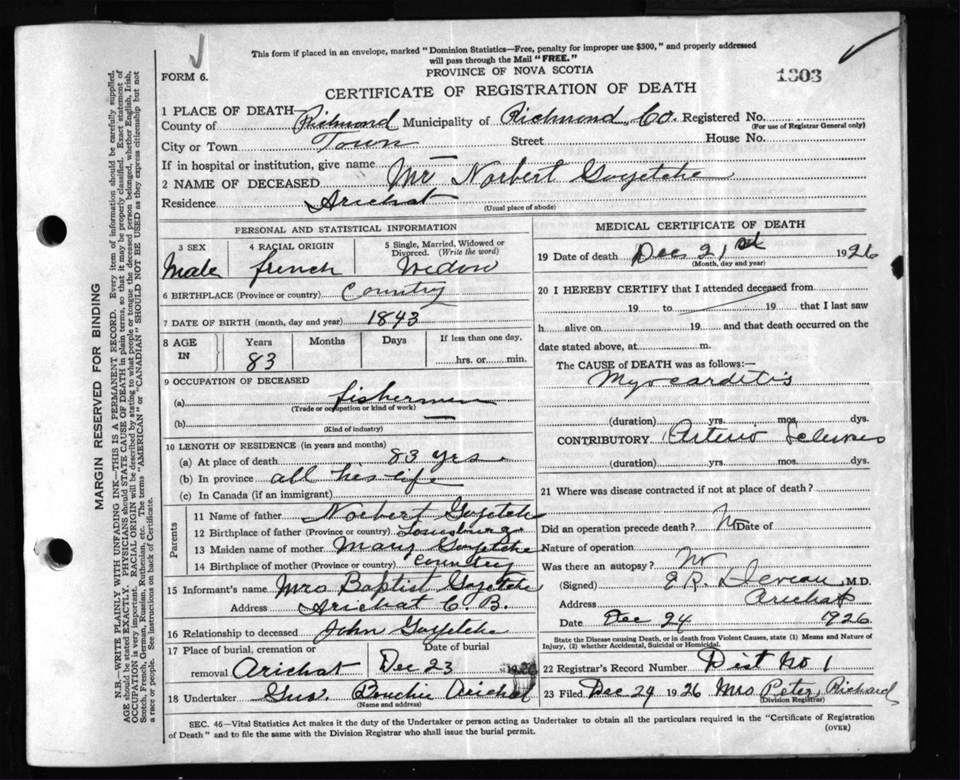 This form if placed in an envelope, marked "Dominion Statistics—Free, penalty for improper use $300," and properly addressed
will pass through the Mail "FREE."
FORM 6.
PROVINCE OF NOVA SCOTIA
1303
CERTIFICATE OF REGISTRATION OF DEATH
1 PLACE OF DEATH
County of Richmond Municipality of Richmond Co. Registered No.
(For use of Registrar General only)
City or Town Town Street House No.
If in hospital or institution, give name —
2 NAME OF DECEASED Mr Norbert Goyetche
Residence Arichat
(Usual place of abode)
PERSONAL AND STATISTICAL INFORMATION
3 SEX 4 RACIAL ORIGIN 5 Single, Married, Widowed or Divorced. (Write the word)
Male french Widow
6 BIRTHPLACE (Province or country) Country
7 DATE OF BIRTH (month, day and year) 1843
8 AGE IN Years Months Days If less than one day,
83 hrs. or min.
9 OCCUPATION OF DECEASED
(a) fishermen
(Trade or occupation or kind of work)
(b) —
(Kind of industry)
10 LENGTH OF RESIDENCE (in years and months)
(a) At place of death 83 yrs.
(b) In province all his life
(c) In Canada (if an immigrant)
Parents
11 Name of father Norbert Goyetche
12 Birthplace of father (Province or country) Louisburg
13 Maiden name of mother Mary Goyetche
14 Birthplace of mother (Province or country) Country
15 Informant's name Mrs Baptist Goyetche
Address Arichat C. B.
16 Relationship to deceased John Goyetche
17 Place of burial, cremation or removal Date of burial
Arichat Dec 23 1926
18 Undertaker Gus. Bouchie Arichat
(Name and address)
MEDICAL CERTIFICATE OF DEATH
19 Date of death Dec 21st 1926
(Month, day and year)
20 I HEREBY CERTIFY that I attended deceased from
19 to 19 that I last saw
h alive on 19 and that death occurred on
date stated above, at m.
The CAUSE OF DEATH was as follows:—
Myocarditis
(duration) yrs. mos. dys.
CONTRIBUTORY Arterio
(duration) yrs. mos. dys.
21 Where was disease contracted if not at place of death?
Did an operation precede death? N Date of
Nature of operation
Was there an autopsy? No
(Signed) Deveau M.D.
Address Arichat
Date Dec 24 1926
State the Disease causing Death, or in death from Violent Causes, state (1) Means and Nature of
Injury, (2) whether Accidental, Suicidal or Homicidal.
22 Registrar's Record Number Dist No 1
23 Filed Dec 29 1926 Mrs Peter Richard
(Division Registrar)
SEC. 46—Vital Statistics Act makes it the duty of the Undertaker or person acting as Undertaker to obtain all the particulars required in the "Certificate of Registration
of Death" and to file the same with the Division Registrar who shall issue the burial permit.
(OVER)
MARGIN RESERVED FOR BINDING
N.B.—WRITE PLAINLY WITH UNFADING INK—THIS IS A PERMANENT RECORD. Every item of information should be carefully supplied.
AGE should be stated EXACTLY. PHYSICIANS should STATE CAUSE OF DEATH in plain terms, so that it may be properly classified. Exact statement of
OCCUPATION is very important. RACIAL ORIGIN will be described by stating to what people or tongue the deceased person belonged, whether English, Irish,
Scotch, French, German, Russian, Ruthenian, etc. The terms "AMERICAN" or "CANADIAN" SHOULD NOT BE USED as they express citizenship but not
a race or people. See instructions on back of Certificate.